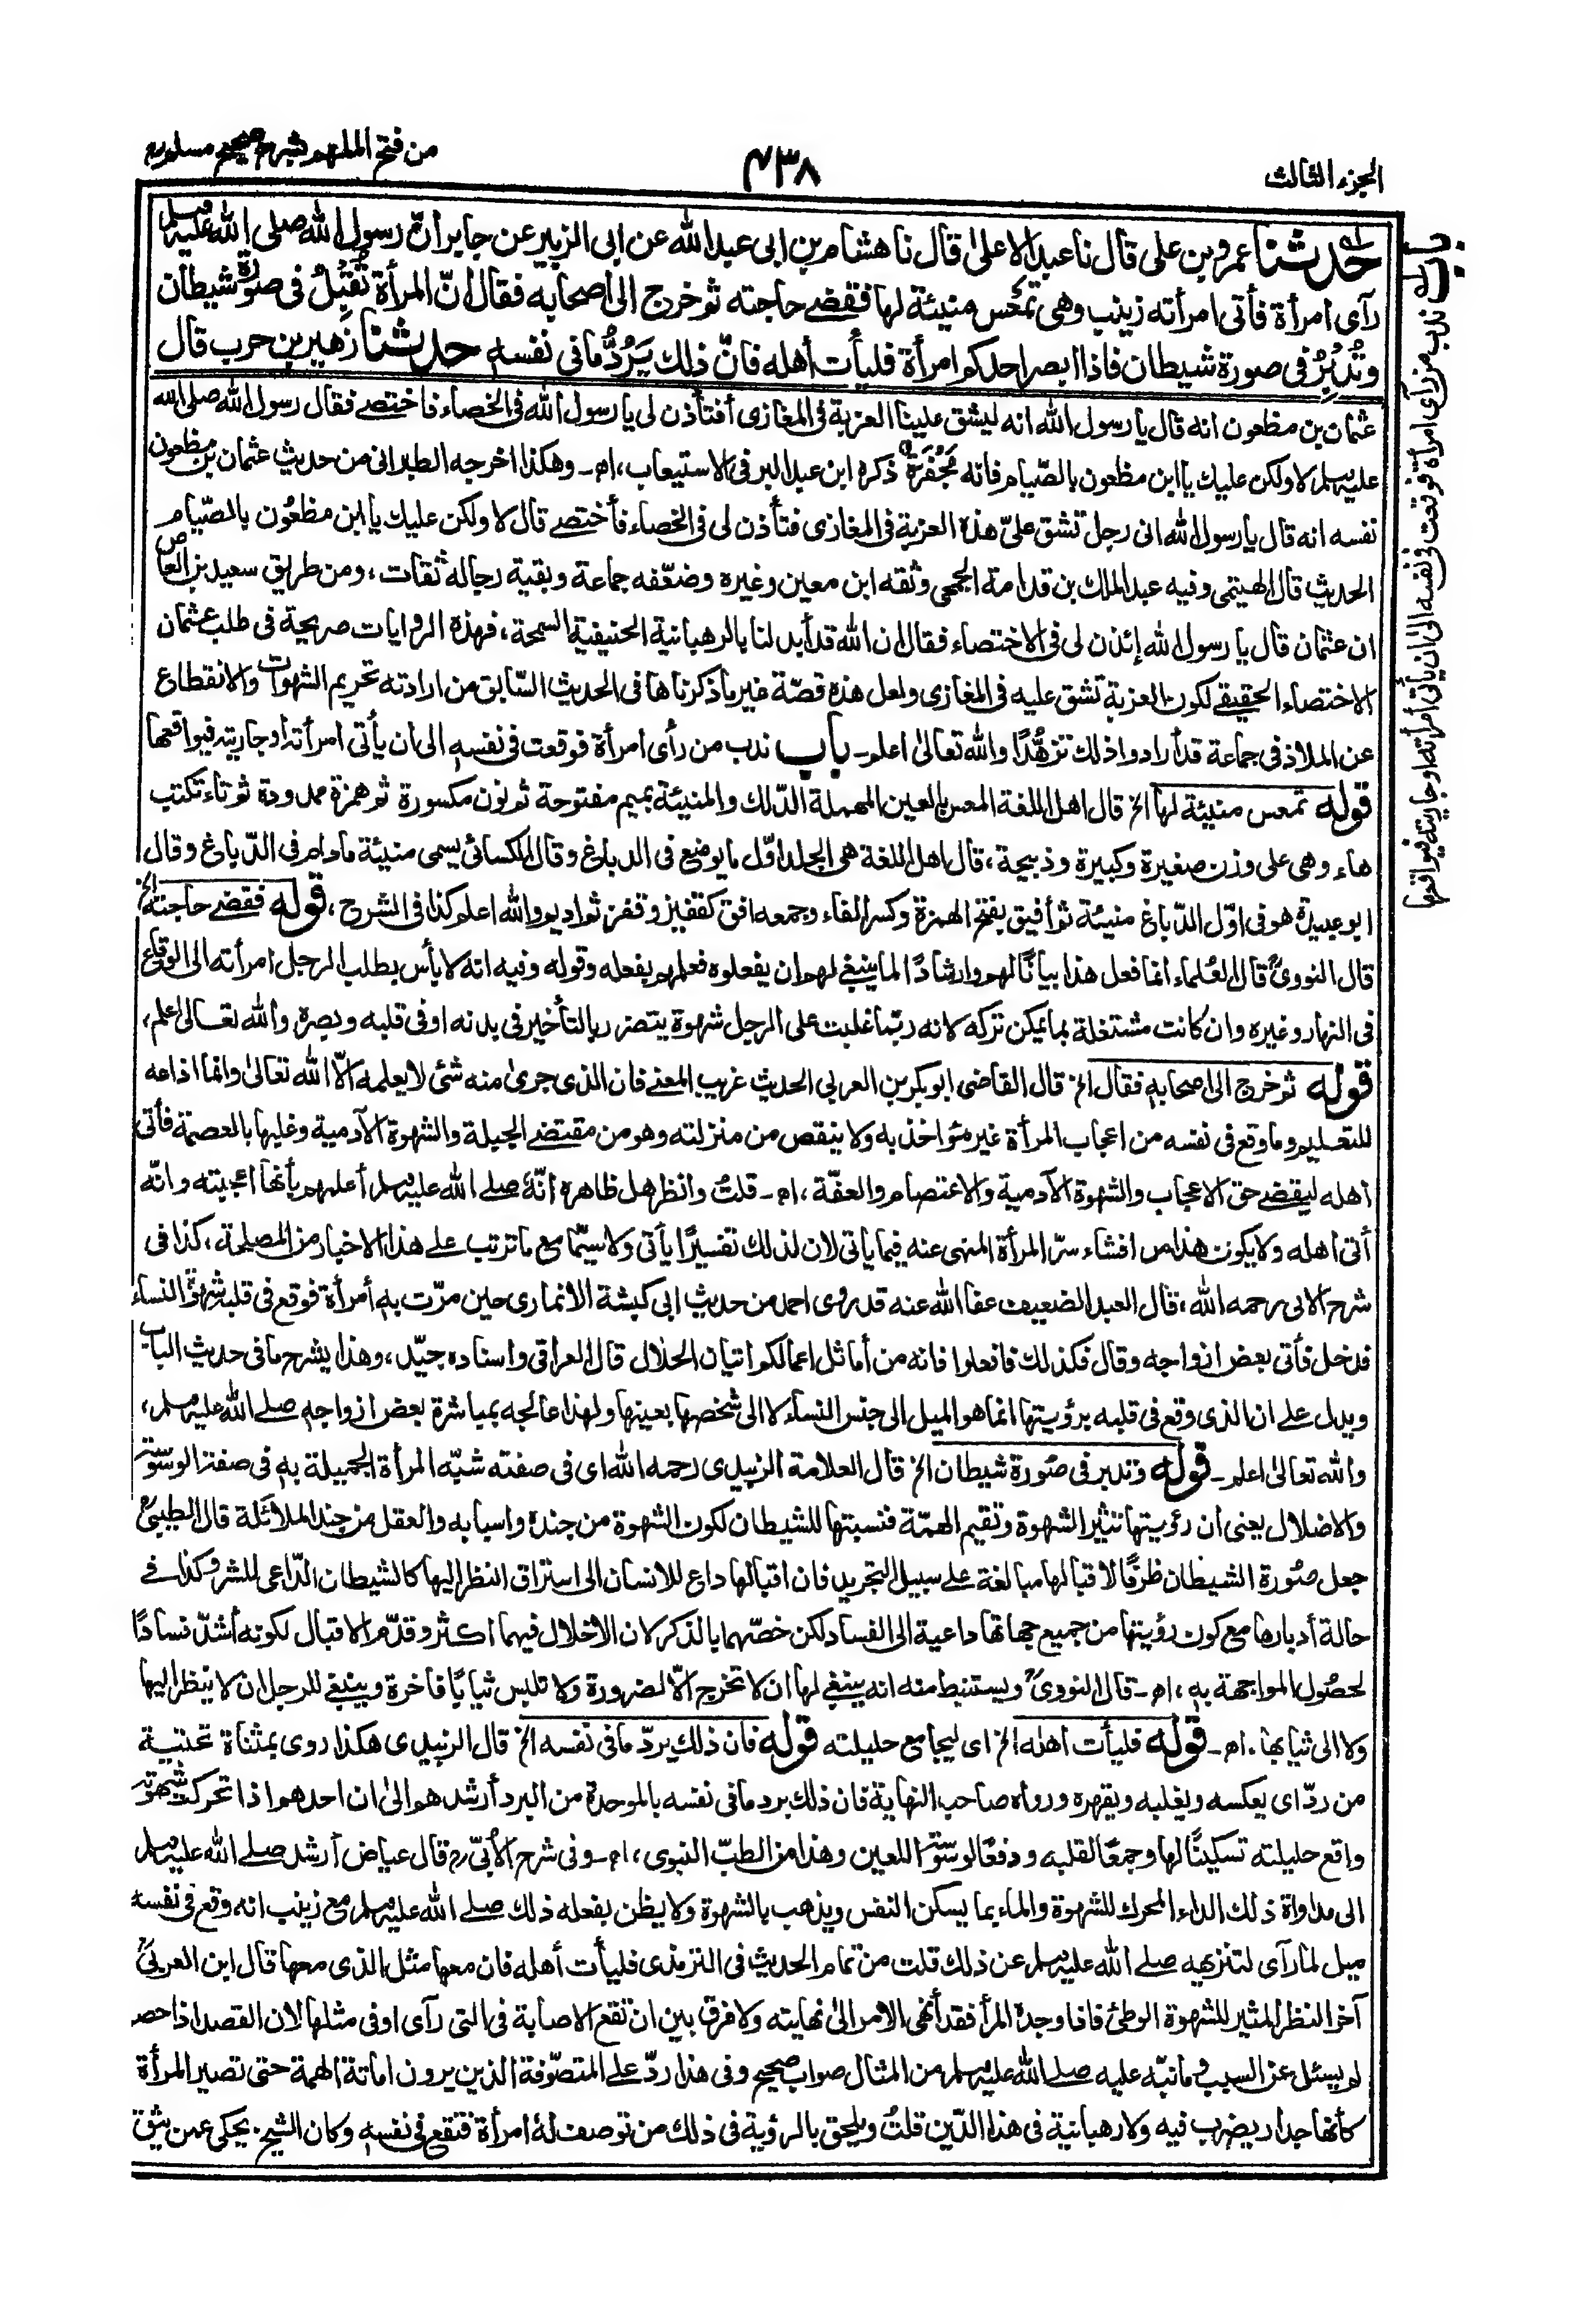 الجزء الثالث
٤٣٨
من فتح الملهم بشرح صحيح مسلم
باب ندب من رأى امرأة فوقعت فى نفسه الى ان يأتى امرأته او جاريته فيواقعها
حدثنا عمرو بن على قال نا عبد الاعلى قال نا هشام بن ابى عبد الله عن ابى الزبير عن جابر انّ رسول الله صلى الله عليه وسلم
رآى امرأة فأتى امرأته زينب وهى تمعس منيئة لها فقضے حاجته ثم خرج الى اصحابه فقال انّ المرأة تُقْبِلُ فى صورة شيطان
وتُدْبِرُ فى صورة شيطان فاذا ابصر احدكم امرأة فليأت أهله فانّ ذلك يَرُدُّ ما فى نفسه حدثنا زهير بن حرب قال
عثمان بن مظعون انه قال يا رسول الله انه ليشق علينا العزبة فى المغازى أفتأذن لى يا رسول الله فى الخصاء فاختصے فقال رسول الله صلى الله
عليه وسلم لا ولكن عليك يا ابن مظعون بالصّيام فانه مَجْفَرَة ذكره ابن عبد البر فى الاستيعاب، اھ۔ وهكذا اخرجه الطبرانى من حديث عثمان بن مظعون
نفسه انه قال يا رسول الله انى رجل تشق علىّ هذه العزبة فى المغازى فتأذن لى فى الخصاء فأختصے قال لا ولكن عليك يا ابن مظعُون بالصّيام
الحديث قال الهيتمى وفيه عبد الملك بن قدامة الجمحى وثقه ابن معين وغيره وضعّفه جماعة وبقية رجاله ثقات، ومن طريق سعيد بن العاص
ان عثمان قال يا رسول الله إئذن لى فى الاختصاء فقال ان الله قد أبدلنا بالرهبانية الحنيفية السمحة، فهذه الروايات صريحة فى طلب عثمان
الاختصاء الحقيقے لكون العزبة تشق عليه فى المغازى ولعل هذه قصّة غير ما ذكرناها فى الحديث السّابق من ارادته تحريم الشهوات والانقطاع
عن الملاذ فى جماعة قد أرادوا ذلك تزهُّدًا والله تعالىٰ اعلم۔ باب ندب من رأى امرأة فوقعت فى نفسه الى ان يأتى امرأته او جاريته فيواقعها
قوله تمعس منيئة لها الخ قال اهل اللغة المعس بالعين المهملة الدّلك والمنيئة بميم مفتوحة ثم نون مكسورة ثم همزة ممدودة ثم تاء تكتب
هاء وهى على وزن صغيرة وكبيرة وذبيحة، قال اهل اللغة هى الجلد اوّل ما يوضع فى الدباغ وقال الكسائى يسمى منيئة مادام فى الدّباغ وقال
ابو عبيدة هو فى اوّل الدّباغ منيئة ثم أفيق بفتح الهمزة وكسر الفاء وجمعه افق كقفيز وقفز ثم اديم والله اعلم كذا فى الشرح، قوله فقضے حاجته الخ
قال النووىؒ قال العُلماء انما فعل هذا بيانًا لهم وارشادًا لما ينبغى لهم ان يفعلوه فعلمهم بفعله وقوله وفيه انه لا بأس بطلب الرجل امرأته الى الوقاع
فى النهار وغيره وان كانت مشتغلة بما يمكن تركه لانه ربّما غلبت على الرجل شهوة يتضرر بالتأخير فى بدنه اوفى قلبه وبصره والله تعالى اعلم،
قوله ثم خرج الى اصحابه فقال الخ قال القاضى ابوبكر بن العربى الحديث غريب المعنے فان الذى جرى منه شئ لا يعلمه الّا الله تعالىٰ وانما اذاعه
للتعليم وما وقع فى نفسه من اعجاب المرأة غير مؤاخذ به ولا ينقص من منزلته وهو من مقتضے الجبلة والشهوة الآدمية وغلبها بالعصمة فأتى
اهله ليقضے حق الاعجاب والشهوة الآدمية والاعتصام والعفّة، اھ۔ قلتُ وانظر هل ظاهره انّهٗ صلے الله عليه وسلم أعلمهم بأنها اعجبته وانّه
أتى اهله ولا يكون هذا من افشاء سرّ المرأة المنهى عنه فيما يأتى لان لذلك تفسيرًا يأتى ولا سيّما مع ما ترتب علے هذا الاخبار من المصلحة، كذا فى
شرح الابى رحمه الله، قال العبد الضعيف عفا الله عنه قد روى احمد من حديث ابى كبشة الانمارى حين مرّت به أمرأة فوقع فى قلبه شهوة النساء
فدخل فأتى بعض ازواجه وقال فكذلك فافعلوا فانه من أماثل اعمالكم اتيان الحلال قال العراقى واسناده جيّد، وهذا يشرح ما فى حديث الباب
ويدل علے ان الذى وقع فى قلبه برؤيتها انما هو الميل الى جنس النساء لا الى شخصها بعينها ولهذا عالجه بمباشرة بعض ازواجه صلے الله عليه وسلم،
والله تعالىٰ اعلم۔ قوله وتدبر فى صُورة شيطان الخ قال العلامة الزبيدى رحمه الله اى فى صفته شبّه المرأة الجميلة به فى صفة الوسوسة
والاضلال يعنى ان رؤيتها تثير الشهوة وتقيم الهمّة فنسبتها للشيطان لكون الشهوة من جنده واسبابه والعقل من جند الملائكة قال الطيبىؒ
جعل صُورة الشيطان ظرفًا لاقبالها مبالغة علے سبيل التجريد فان اقبالها داع للانسان الى استراق النظر اليها كالشيطان الدّاعى للشر وكذا فے
حالة أدبارها مع كون رؤيتها من جميع جهاتها داعية الى الفساد لكن خصّهما بالذكر لان الاخلال فيهما اكثر وقدّم الاقبال لكونه أشدّ فسادًا
لحصُول المواجهة به، اھ۔ قال النووىؒ ويستنبط منه انه ينبغے لها ان لا تخرج الّا لضرورة ولا تلبس ثيابًا فاخرة وينبغے للرجل ان لا ينظر اليها
ولا الى ثيابها، اھ۔ قوله فليأت اهله الخ اى ليجامع حليلته قوله فان ذلك يردّ ما فى نفسه الخ قال الزبيدى هكذا روى بمثناة تحتية
من ردّ اى يعكسه ويغلبه ويقهره ورواه صاحب النهاية فان ذلك برد ما فى نفسه بالموحدة من البرد أرشدهم الىٰ ان احدهم اذا تحركت شهوته
واقع حليلته تسكينًا لها وجمعًا لقلبه ودفعًا لوسوسة اللعين وهذا من الطبّ النبوى، اھ۔ وفى شرح الأبىّؒ قال عياض أرشد صلے الله عليه وسلم
الى مداواة ذلك الداء المحرك للشهوة والماء بما يسكن النفس ويذهب بالشهوة ولا يظن بفعله ذلك صلے الله عليه وسلم مع زينب انه وقع فى نفسه
ميل لما رآى لتنزيهه صلے الله عليه وسلم عن ذلك قلت من تمام الحديث فى الترمذى فليأت أهله فان معها مثل الذى معها قال ابن العربىؒ
آخر النظر المثير للشهوة الوطئ فاذا وجده المرأ فقد أنهى الامر الىٰ نهايته ولا فرق بين ان تقع الاصابة فى التى رآى اوفى مثلها لان القصد اذا حصل
لم يسئل عن السبب وما نبّه عليه صلے الله عليه وسلم من المثال صواب صحيح وفى هذا ردّ علے المتصوّفة الذين يرون اماتة الهمة حتى تصير المرأة
كأنها جدار يضرب فيه ولا رهبانية فى هذا الدّين قلتُ ويلحق بالرؤية فى ذلك من توصف لهٗ امرأة فتقع فى نفسه وكان الشيخ يحكى عمن يثق